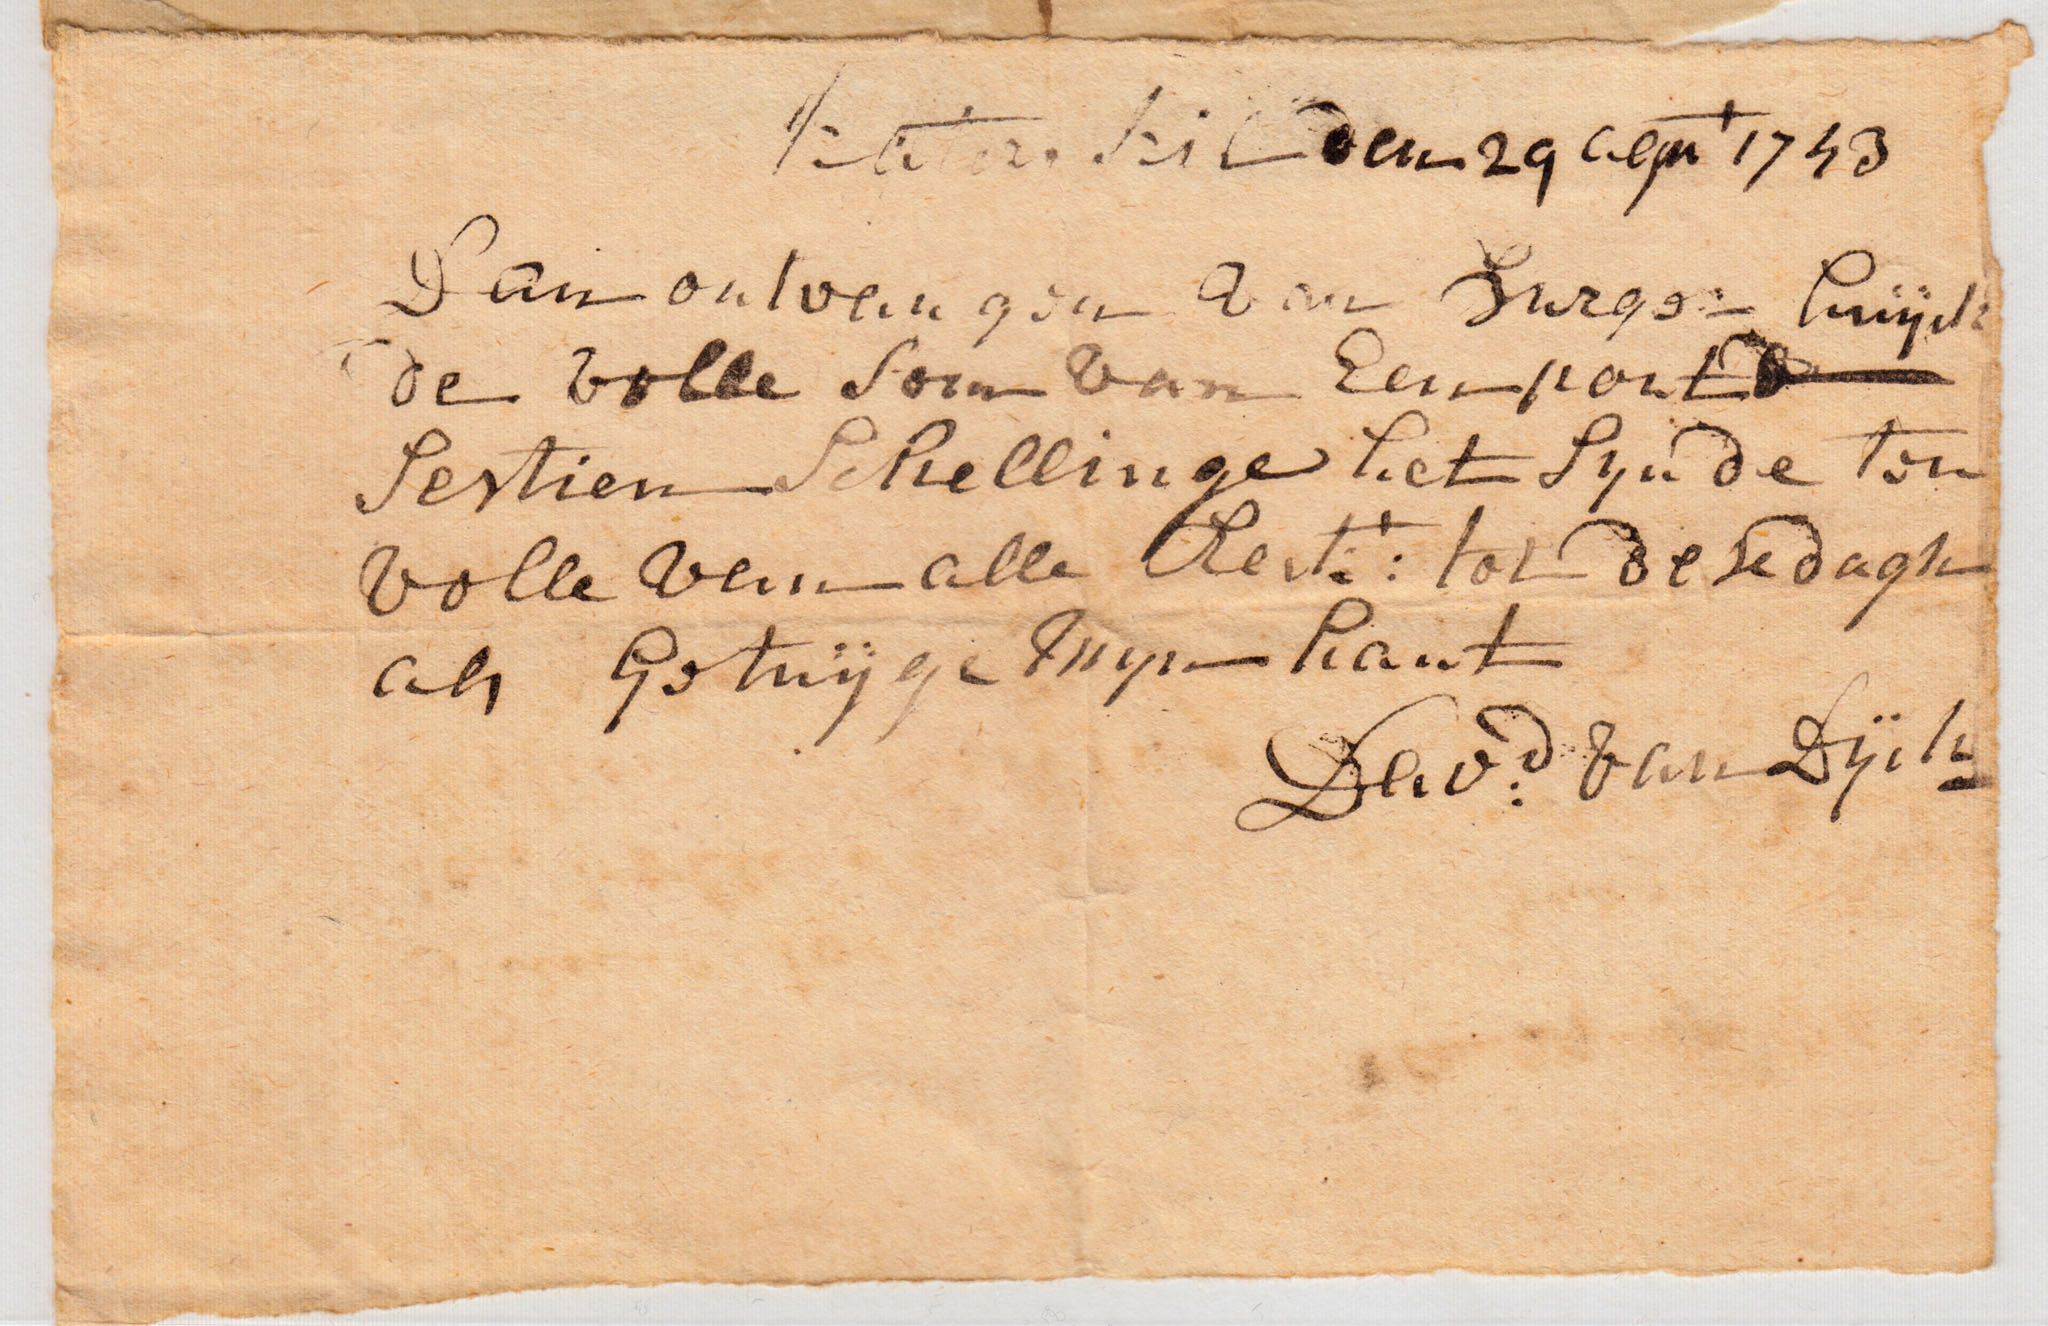 Katers kil den 29 Aepr 1743
Dan ontvangen Van Jurgen huijck
de volle Som van Een pont
Sestien Schellinge het Synde ten
volle van alle Rest: tot dese dagh
als Getuijge Myn hant
Davd: van Dÿck